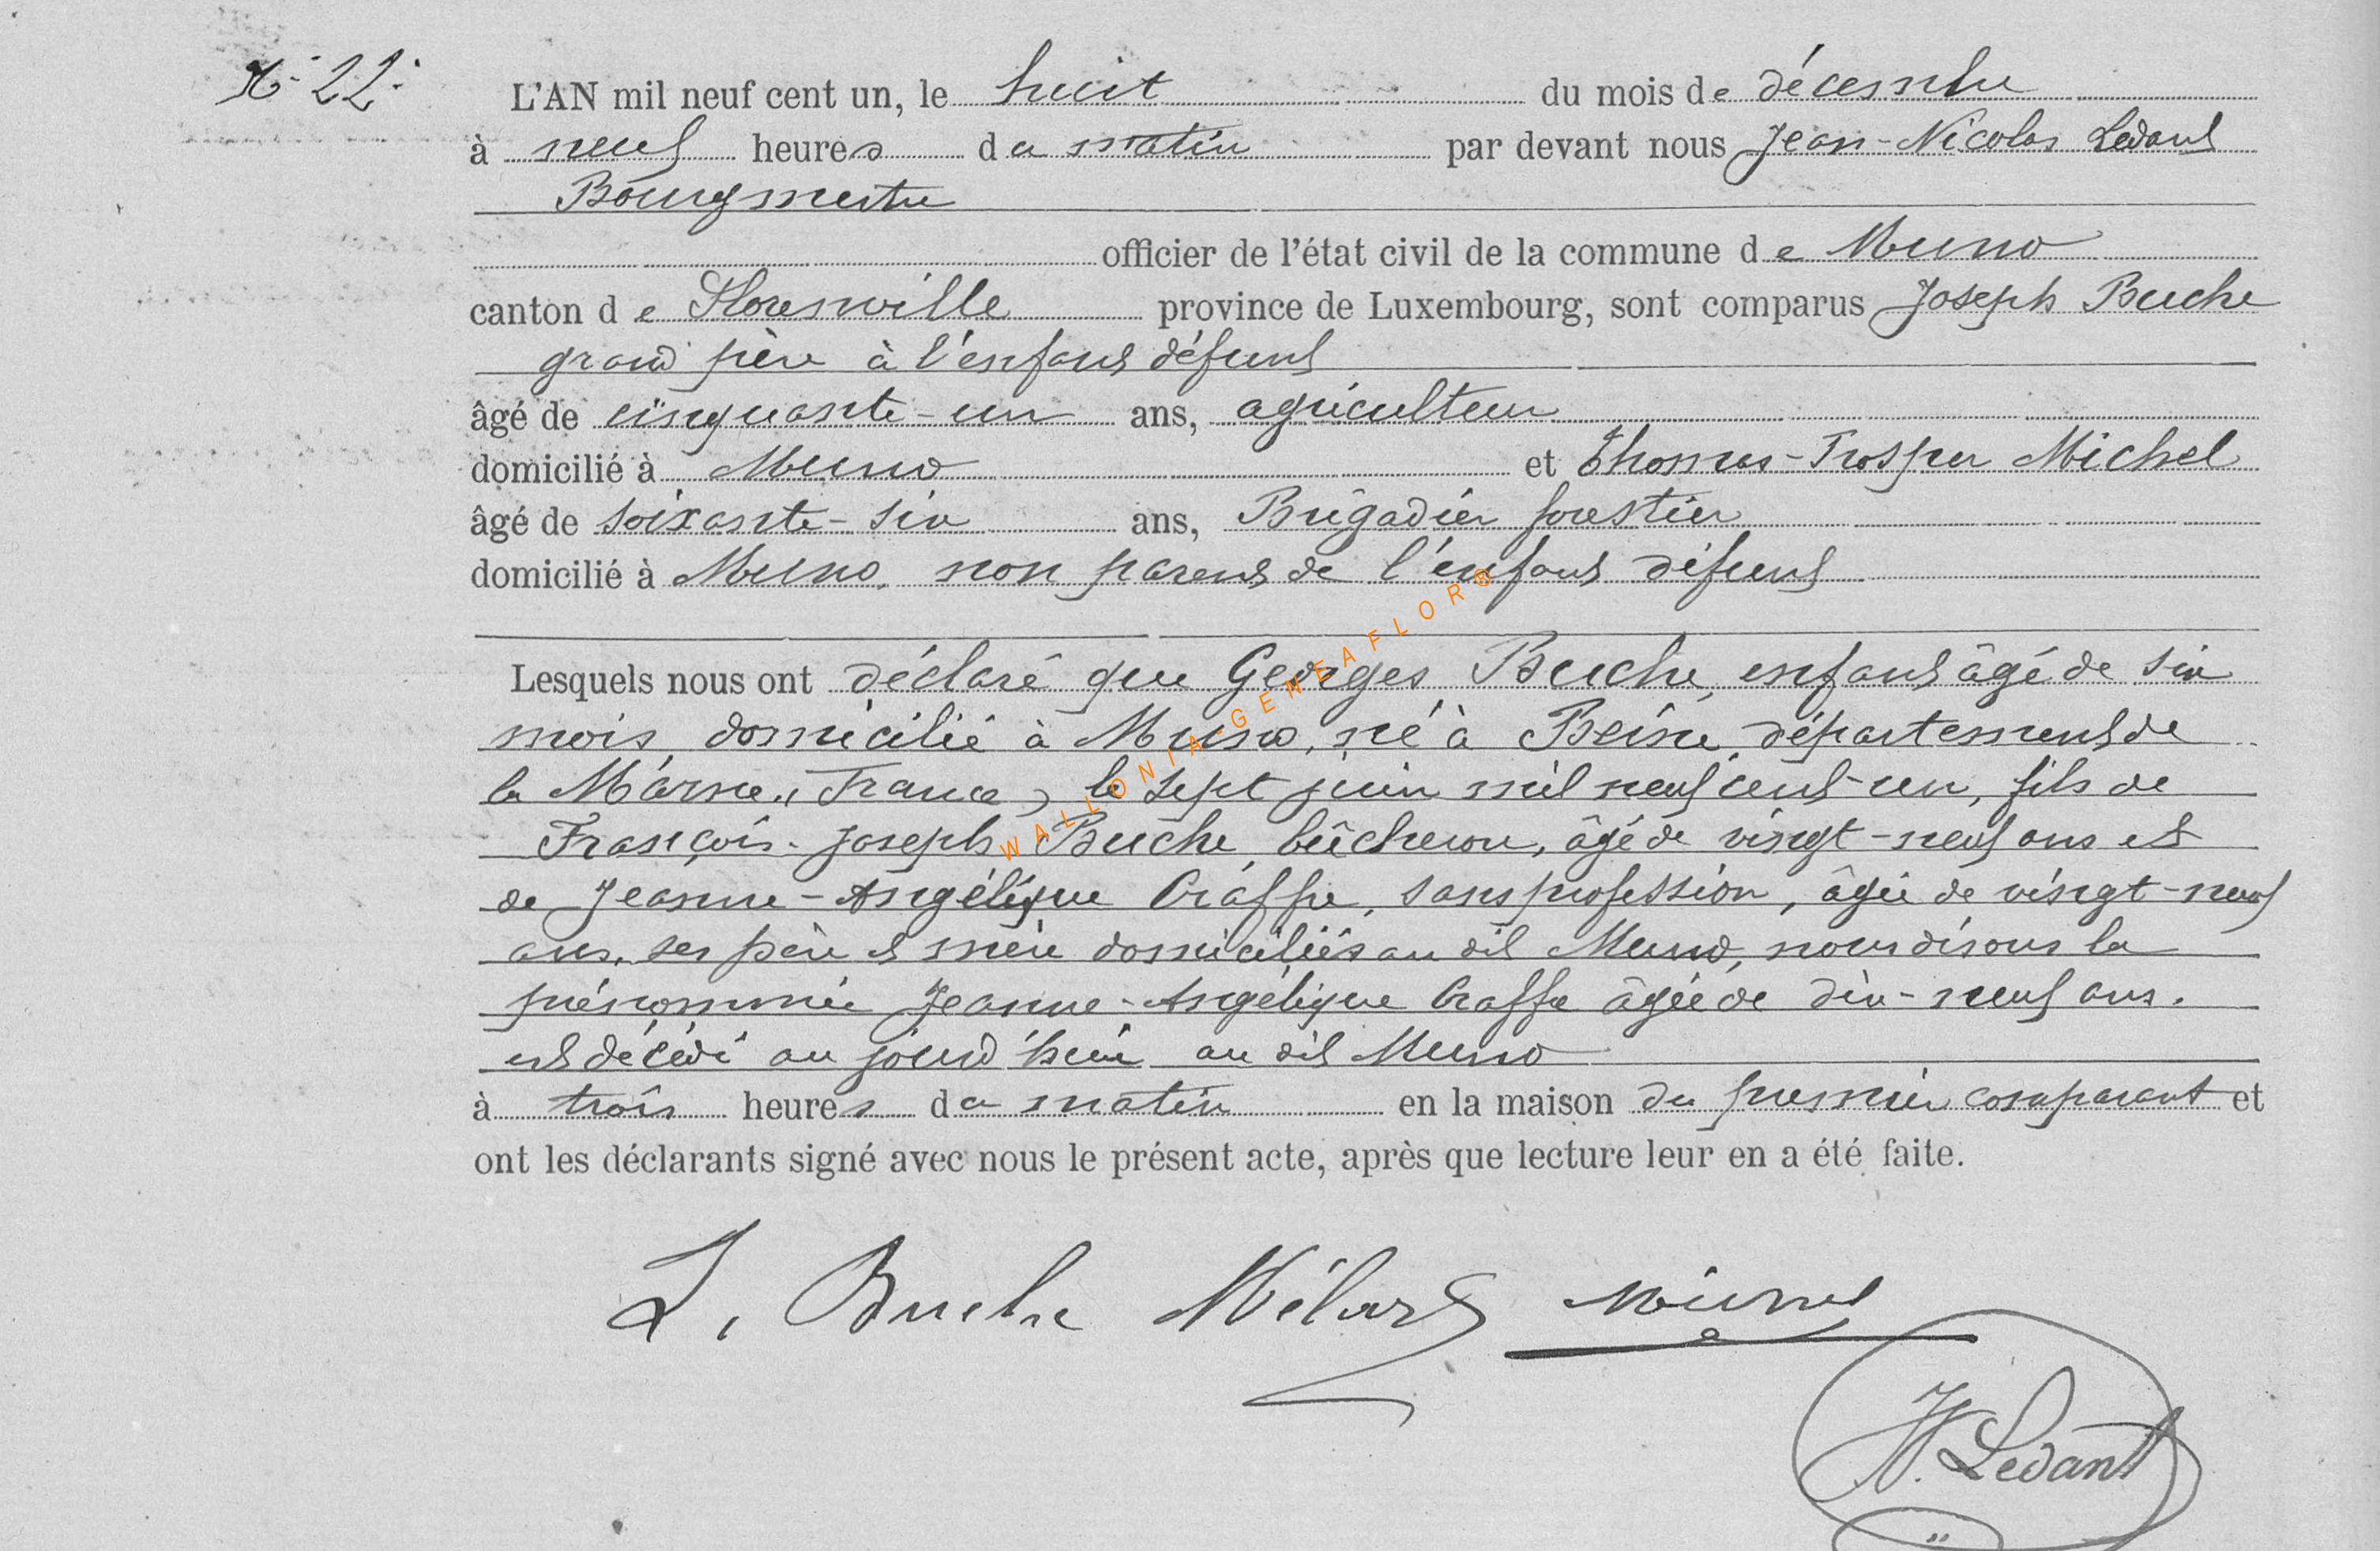 N° 22.
L'AN mil neuf cent un, le huit du mois de décembre
à neuf heures du matin par devant nous Jean-Nicolas Ledant
Bourgmestre
officier de l'état civil de la commune de Muno
canton de Florenville province de Luxembourg, sont comparus Joseph Buche
grand père à l'enfant défunt
âgé de cinquante-un ans, agriculteur
domicilié à Muno et Thomas-Prosper Michel
âgé de soixante-six ans, Brigadier forestier
domicilié à Muno, non parent de l'enfant défunt
Lesquels nous ont déclaré que Georges Buche, enfant âgé de six
mois, domicilié à Muno, né à Beine, département de
la Marne (France) le sept juin mil neuf cent-un, fils de
François-Joseph Buche, bûcheron, âgé de vingt-neuf ans et
de Jeanne-Angélique Craffe, sans profession, âgée de vingt-neuf
ans, ses père et mère domiciliés au dit Muno, nous disons la
prénommée Jeanne-Angélique Craffe âgée de dix-neuf ans.
est décédé au jourd'hui au dit Muno
à trois heures du matin en la maison du premier comparant et
ont les déclarants signé avec nous le présent acte, après que lecture leur en a été faite.
J. Buche
JN. Ledant
WALLONIA-GENEAFLOR®